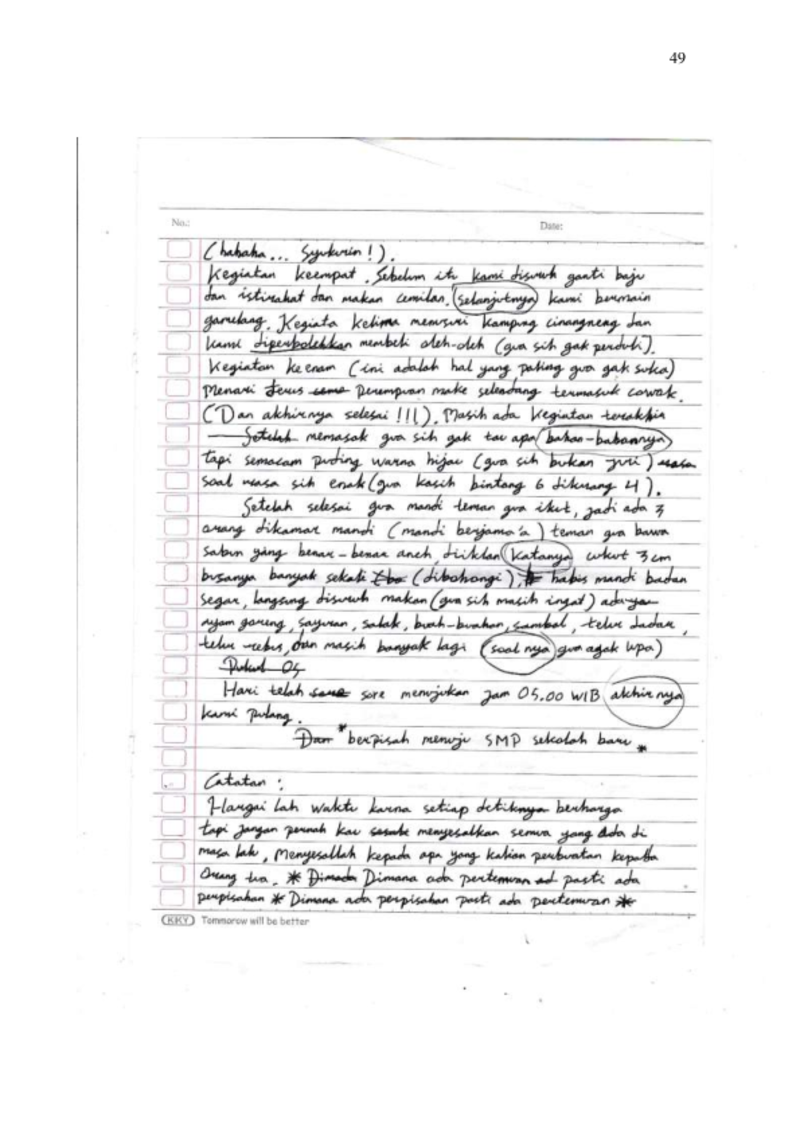 49
No.: Date:
(hahaha... Syukurin!).
Kegiatan keempat. Sebelum itu kami disuruh ganti baju
dan istirahat dan makan cemilan. selanjutnya kami bermain
gamelang. Kegiata kelima menusuri kampung cinangneng dan
kami diperbolehkan membeli oleh-oleh (gua sih gak perduli).
Kegiatan keenam (ini adalah hal yang paling gua gak suka)
Menari terus perempuan make selendang termasuk cowok.
(Dan akhirnya selesai !!!). Masih ada kegiatan terakhir
Setelah memasak gua sih gak tau apa bahan-bahannya
tapi semacam puding warna hijau (gua sih bukan juri)
soal rasa sih enak (gua kasih bintang 6 dikurang 4).
Setelah selesai gua mandi teman gua ikut, jadi ada 3
orang dikamar mandi (mandi berjama'a) teman gua bawa
sabun yang benar-benar aneh, diiklan katanya cukut 3 cm
busanya banyak sekali (dibohongi), habis mandi badan
segar, langsung disuruh makan (gua sih masih ingat) adaya
ayam goreng, sayuran, salak, buah-buahan, sambal, telur dadar,
telur rebus, dan masih banyak lagi (soal nya gua agak lupa)
Pukul 05
Hari telah sore menujukan jam 05.00 WIB akhirnya
kami pulang.
Dan *berpisah menuju SMP sekolah baru *
Catatan :
Hargai lah waktu karna setiap detiknya berharga
tapi jangan pernah kau menyesalkan semua yang ada di
masa lalu, Menyesallah kepada apa yang kalian perbuatan kepada
Orang tua. * Dimana Dimana ada pertemuan pasti ada
perpisahan * Dimana ada perpisahan pasti ada pertemuan *
KKY Tommorow will be better